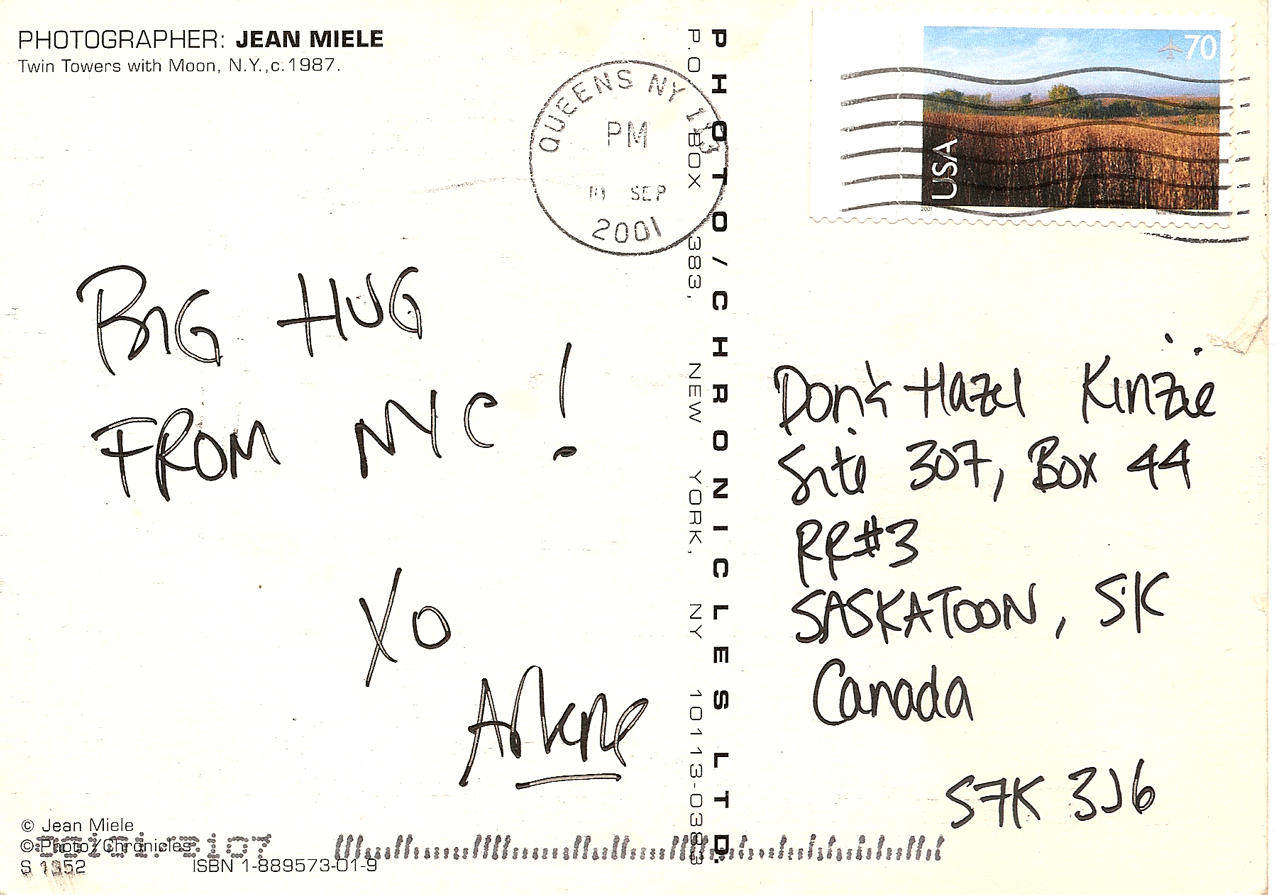 PHOTOGRAPHER: JEAN MIELE
Twin Towers with Moon, N.Y.,c.1987.
QUEENS NY 113
PM
SEP
2001
70
USA
2001
BIG HUG
FROM NYC!
XO
Arlene
PHOTO/CHRONICLES LTD.
P.O. BOX 383, NEW YORK, NY 10113-0383
Don & Hazel Kinzie
Site 307, Box 44
RR#3
SASKATOON, SK
Canada
S7K 3J6
© Jean Miele
© Photo/Chronicles
S 1352
ISBN 1-889573-01-9